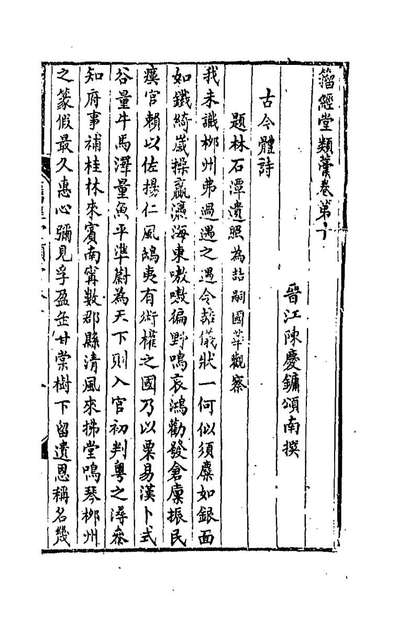 籀經堂類藁卷第十
晉江陳慶鏞頌南撰
古今體詩
題林石潭遺照為喆嗣國華觀察
我未識柳州弗過遇之遇今茲儀狀一何似須麋如銀面
如鐵綺歲操贏瀛海東嗷嗷徧野鳴哀鴻勸發倉廩振民
瘼官賴以佐揚仁風鴟夷有術權之國乃以粟易漢卜式
谷量牛馬澤量魚平準蔚為天下則入官初判粵之潯叅
知府事補桂林來賓南寧數郡縣清風來拂堂鳴琴柳州
之篆假最久惠心彌見孚盈缶甘棠樹下留遺恩稱名幾